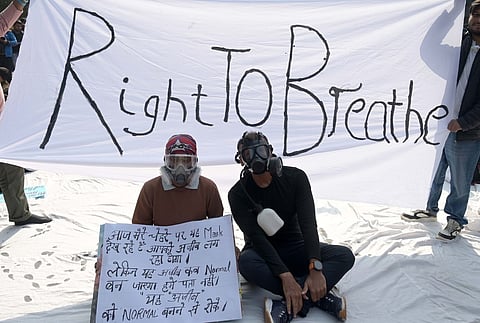 Right To Breathe
आज मेरे चेहरे पर यह Mask
देख रहे हैं आपको अजीब लग
रहा होगा।
लेकिन यह अजीब कब Normal
बन जाएगा हमें पता नहीं।
यह अजीब
को NORMAL बनने से रोकें।